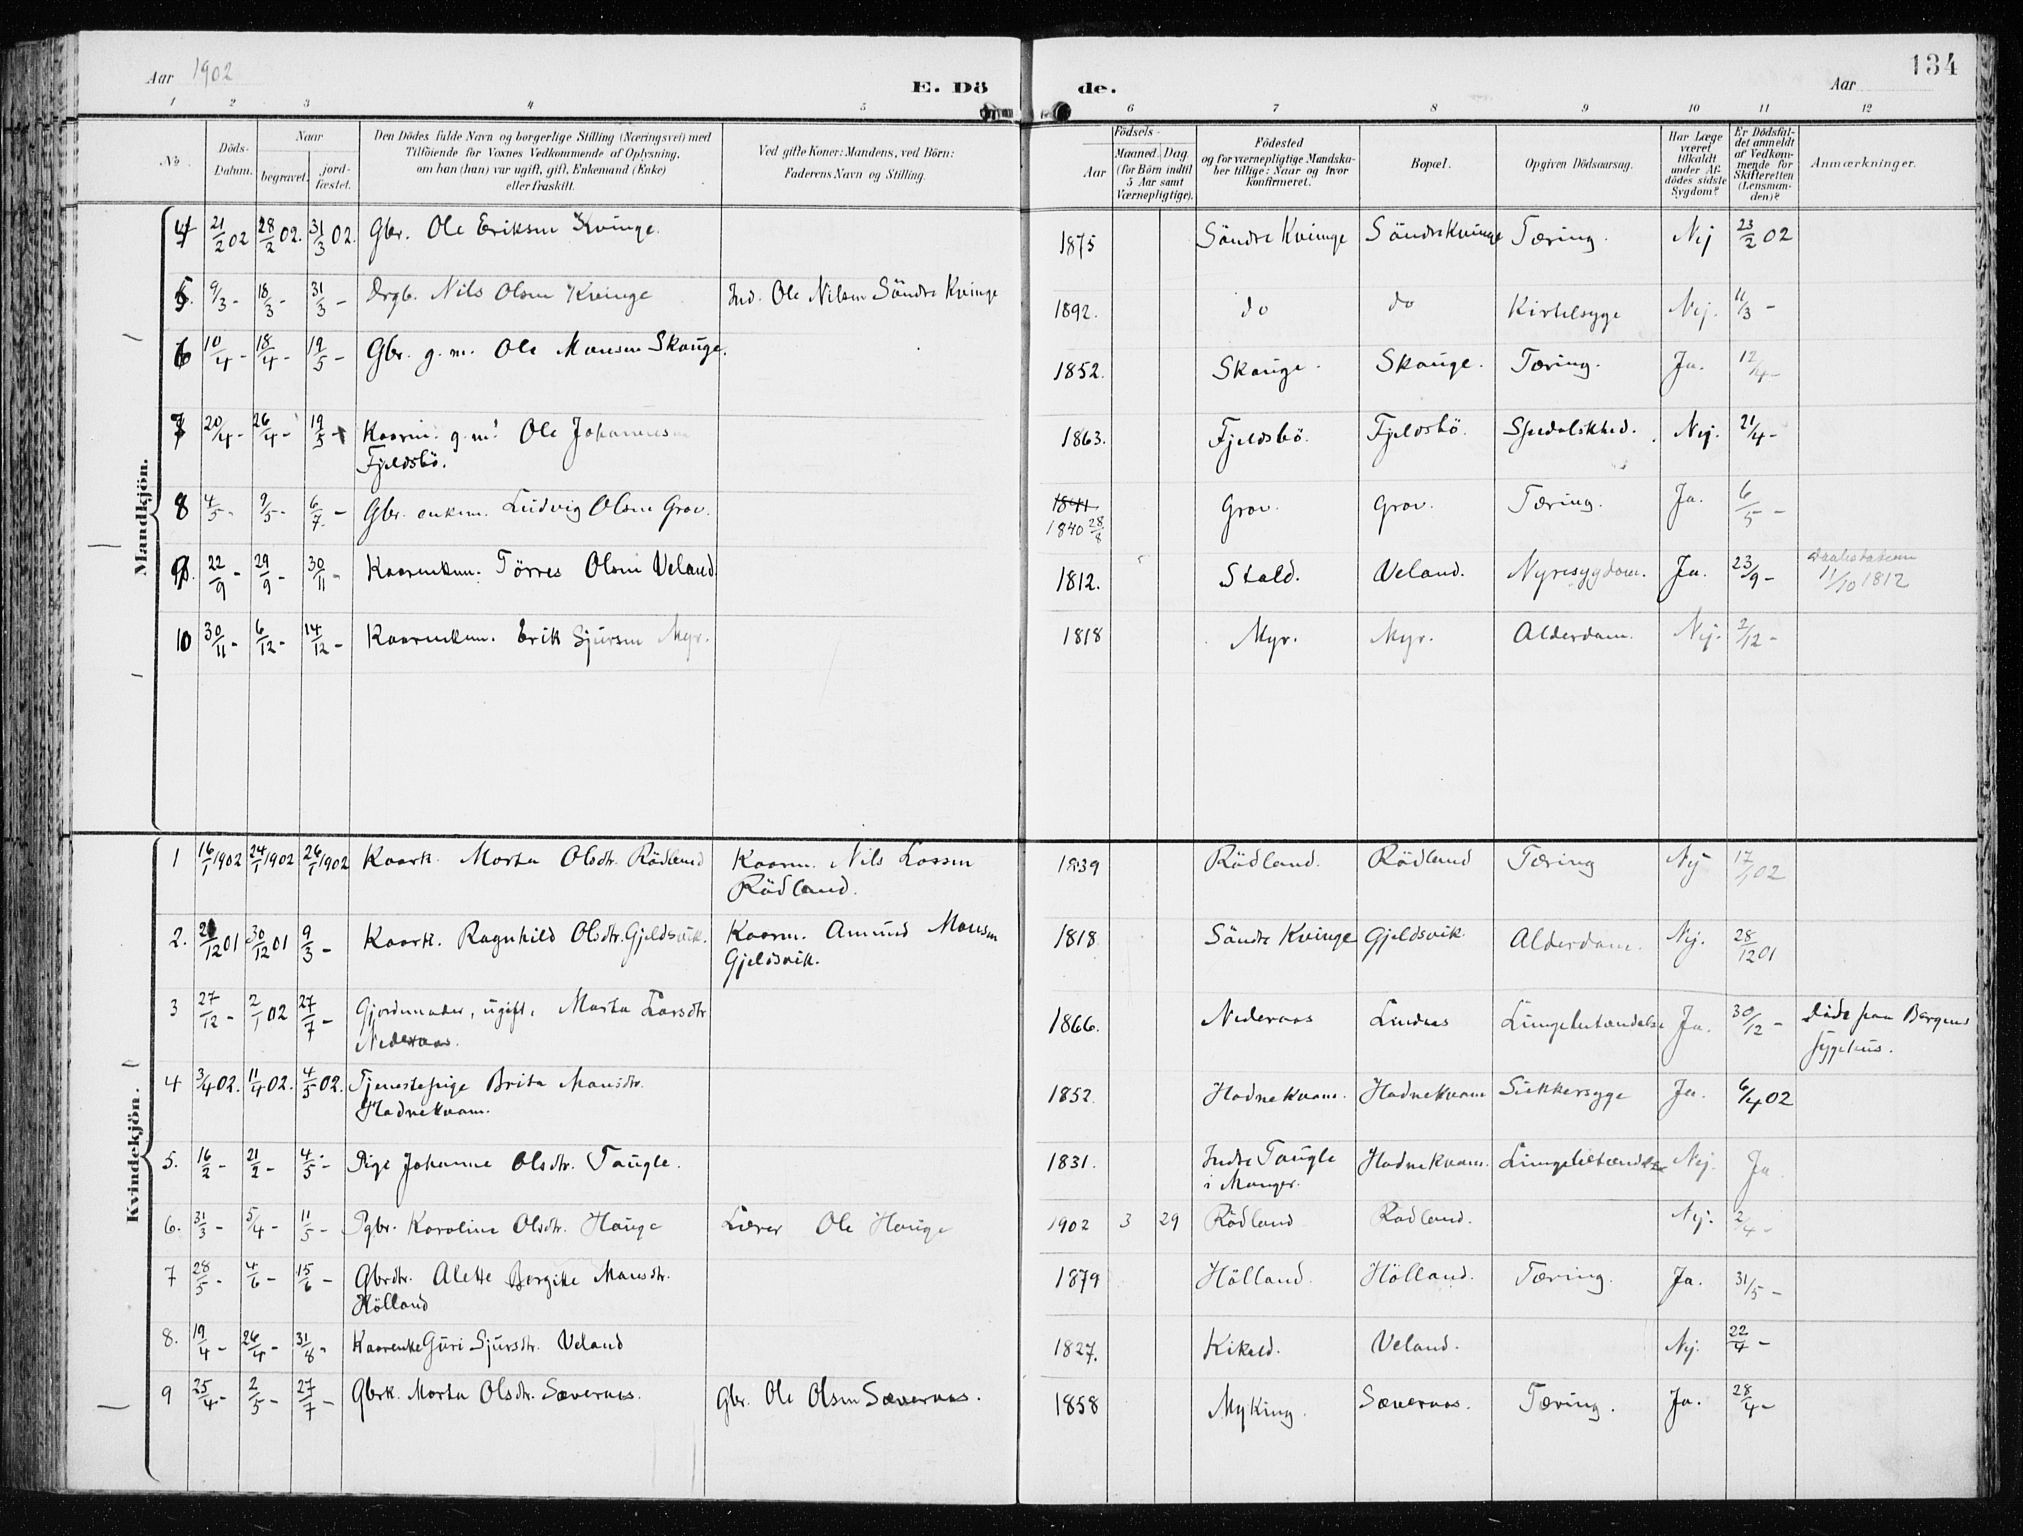 Aar 1902 E. Dö de. Aar 134
1 2 3 4 5 6 7 8 9 10 11 12
No. Döds-Datum. Naar begravet. jord-fæstet. Den Dödes fulde Navn og borgerlige Stilling (Næringsvei) med Tilföiende for Voxnes Vedkommende af Oplysning, om han (hun) var ugift, gift, Enkemand (Enke) eller fraskilt. Ved gifte Koner: Mandens, ved Börn: Faderens Navn og Stilling. Födsels- Aar Maaned. Dag. (for Börn indtil 5 Aar samt Værnepligtige). Födested og for værnepligtige Mandskaber tillige: Naar og hvor konfirmeret. Bopæl. Opgiven Dödsaarsag. Har Læge været tilkaldt under Afdödes sidste Sygdom? Er Dödsfaldet anmeldt af Vedkommende for Skifteretten (Lensmanden)? Anmærkninger.
Mandkjön.
4 21/2 02 28/2 02. 31/3 02. Gbr. Ole Eriksen Kvinge. 1875 Söndre Kvinge Söndre Kvinge Tæring. Nej 23/2 02
5. 9/3 - 18/3 - 31/3 - Drgb. Nils Olsen Kvinge Ind. Ole Nilsen Söndre Kvinge 1892. do do Kirtelsyge Nej. 11/3 -
6 10/4 - 18/4 - 19/5 - Gbr. g. m. Ole Monsen Skauge. 1852. Skauge. Skauge. Tæring. Ja. 12/4 -
7 20/4 - 26/4 - 19/5 - Kaarm. g. m. Ole Johannesen
Fjeldsbö. 1863. Fjeldsbö. Fjeldsbö. Spedalskhed. Nej. 21/4 -
8 4/5 - 9/5 - 6/7 - Gbr. enkem. Ludvig Olsen Grov. 1841
1840 28/8 Grov. Grov. Tæring. Ja. 6/5 -
9. 22/9 - 29/9 - 30/11 - Kaarenkem. Törres Olsen Veland 1812. Stald. Veland. Nyresygdom. Ja. 23/9 - Daabsdatum
11/10 1812
10 30/11 - 6/12 - 14/12 - Kaarenkem. Erik Sjursen Myr. 1818 Myr. Myr. Alderdom. Nej. 2/12 -
Kvindekjön.
1 16/1 1902 24/1 1902 26/1 1902 Kaark. Marta Olsdtr. Rödland Kaarm. Nils Lassen
Rödland. 1839 Rödland. Rödland Tæring Nej 17/1 02
2. /12 01 30/12 01 9/3 - Kaark. Ragnhild Olsdtr. Gjeldsvik. Kaarm. Amund Monsen
Gjeldsvik. 1818 Söndre Kvinge Gjeldsvik Alderdom. Nej. 28/12 01
3 27/12 - 2/1 02 27/7 - Gjordemoder, ugift, Marta Larsdtr
Nederaas. 1866. Nederaas Lindaas Lungebetændelse Ja. 30/12 - Döde paa Bergens
sygehus.
4 3/4 02. 11/4 02. 4/5 02. Tjenestepige Brita Monsdtr.
Hodnekvam. 1852. Hodnekvam. Hodnekvam Sukkersyge Ja. 6/4 02
5. 16/2 - 21/2 - 4/5 - Pige Johanne Olsdtr. Taugle. 1831. Indre Taugle
i Manger. Hodnekvam. Lungebetændelse Nej. Ja
6. 31/3 - 5/4 - 11/5 - Pgbr. Karoline Olsdtr. Hauge Lærer Ole Hauge 1902 3 29 Rödland Rödland. Nej. 2/4 -
7 28/5 - 4/6 - 15/6 - Gbrdtr. Alette Bergitte Monsdtr.
Hölland 1879 Hölland. Hölland. Tæring. Ja. 31/5 -
8. 19/4 - 26/4 - 31/8 - Kaarenke Guri Sjursdtr. Veland 1827. Kikeld. Veland. Nej. 22/4 -
9 25/4 - 2/5 - 27/7 - Gbrk. Marta Olsdtr. Sæveraas. Gbr. Ole Olsen Sæveraas. 1858 Myking. Sæveraas. Tæring. Ja. 28/4 -